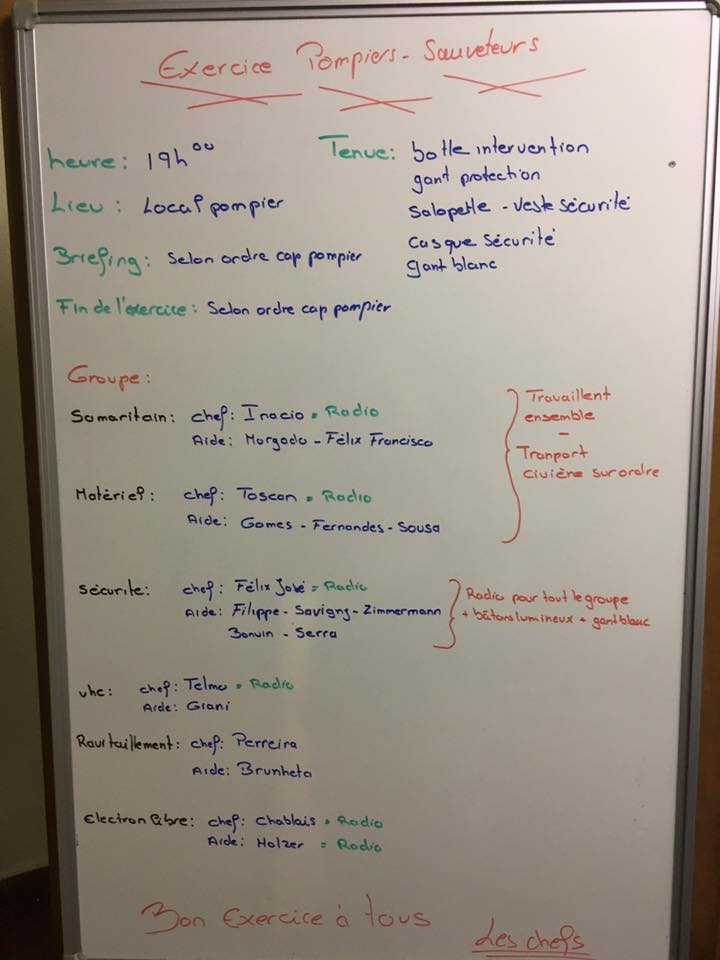 Exercice Pompiers - Sauveteurs
heure: 19h00
Lieu: Local pompier
Briefing: Selon ordre cap pompier
Fin de l'exercice: Selon ordre cap pompier
Tenue: botte intervention
gant protection
Salopette - veste sécurité
Casque sécurité
gant blanc
Groupe:
Samaritain: chef: Inacio = Radio
Aide: Morgado - Félix Francisco
Matériel: chef: Toscan = Radio
Aide: Gomes - Fernandes - Sousa
Travaillent
ensemble
-
Tranport
civière sur ordre
Sécurité: chef: Félix José = Radio
Aide: Filippe - Savigny - Zimmermann
Bonvin - Serra
Radio pour tout le groupe
+ bâtons lumineux + gant blanc
vhc: chef: Telmo = Radio
Aide: Giani
Ravitaillement: chef: Perreira
Aide: Brunheta
Electron libre: chef: Chablais = Radio
Aide: Holzer = Radio
Bon Exercice à tous
Les chefs